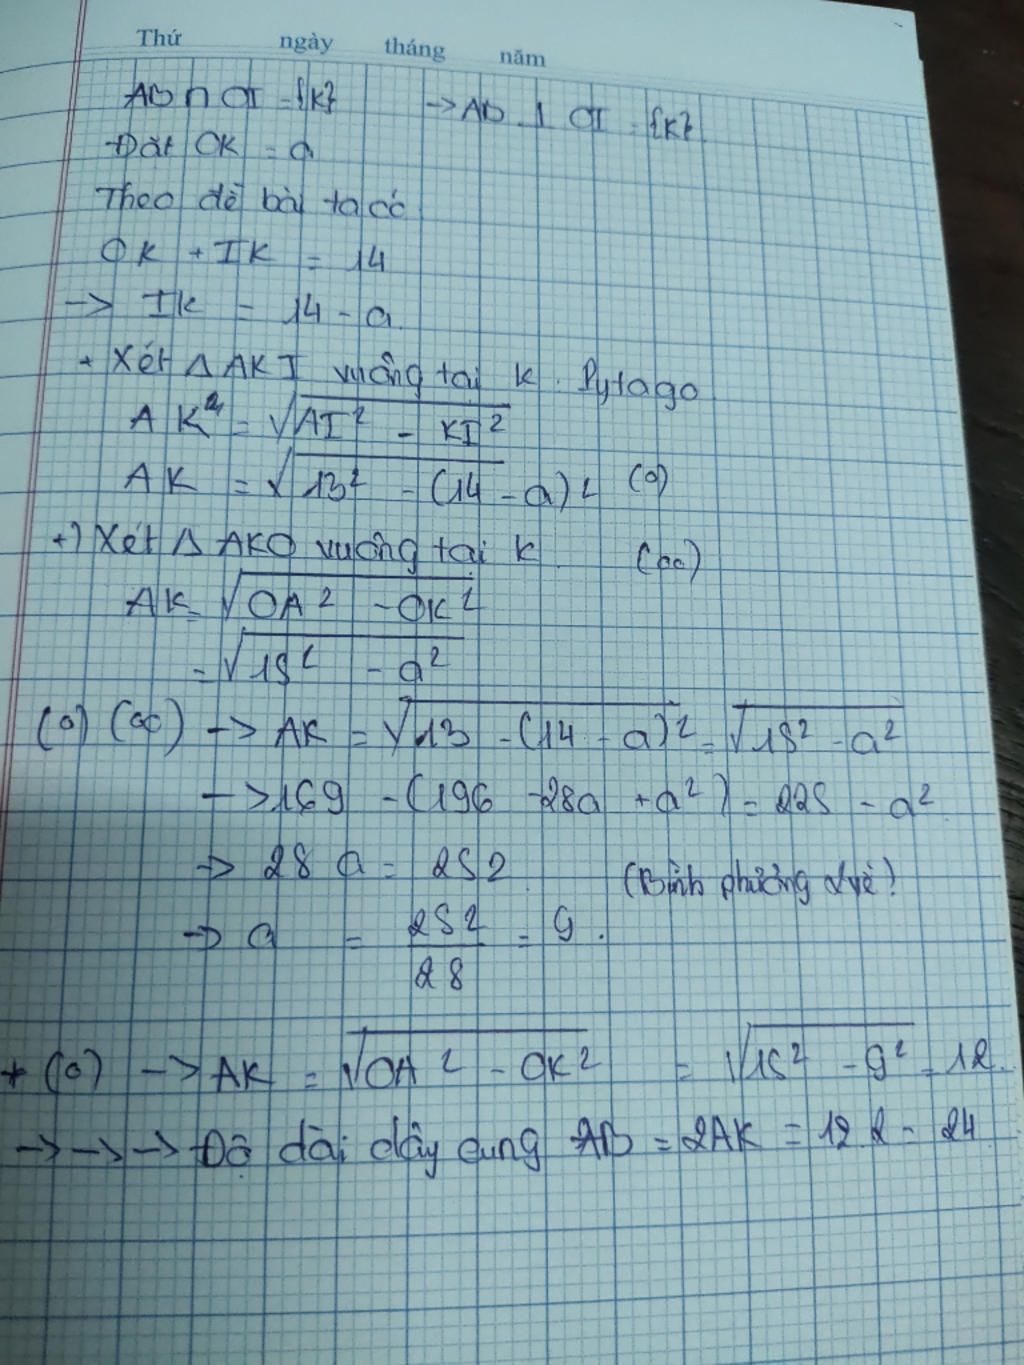 Thứ ngày tháng năm
AB ∩ OI = {K} -> AB ⊥ OI = {K}
Đặt OK = a
Theo đề bài ta có
OK + IK = 14
-> IK = 14 - a
+ Xét Δ AKI vuông tại K. Pytago
AK² = √AI² - KI²
AK = √13² - (14 - a)² (o)
+) Xét Δ AKO vuông tại K (oo)
AK = √OA² - OK²
= √15² - a²
(o) (oo) -> AK = √13 - (14 - a)² = √15² - a²
-> 169 - (196 - 28a + a²) = 225 - a²
-> 28 a = 252 (Bình phương 2 vế)
-> a = 252/28 = 9.
* (o) -> AK = √OA² - OK² = √15² - 9² = 12.
->->-> Độ dài dây cung AB = 2AK = 12.2 = 24